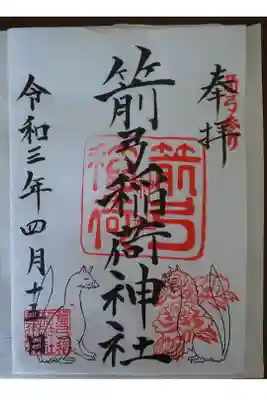 奉拝
箭弓稲荷神社
箭弓稲荷
令和三年四月十三日